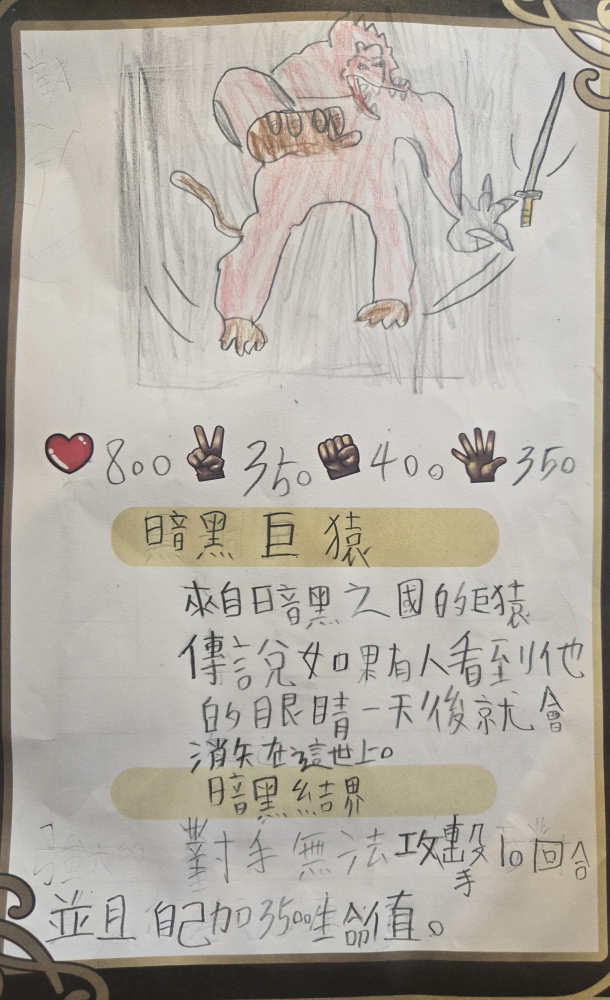 800 350 400 350
暗黑巨猿
來自暗黑之國的巨猿
傳說如果有人看到他
的眼睛一天後就會
消失在這世上。
暗黑結界
對手無法攻擊10回合
手
並且自己加3500生命值。